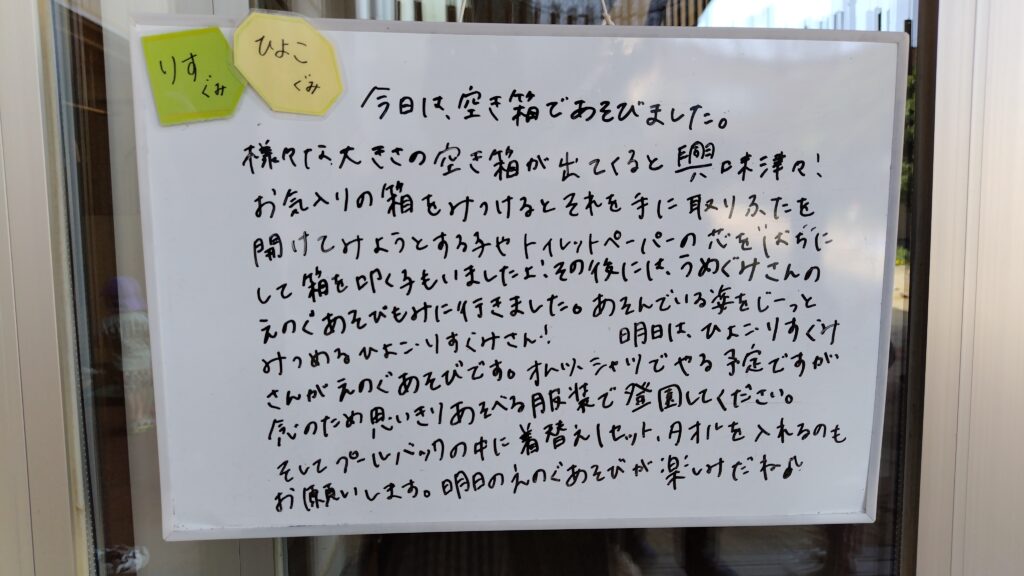 りす
ぐみ
ひよこ
ぐみ
今日は、空き箱であそびました。
様々な大きさの空き箱が出てくると興味津々!
お気入りの箱をみつけるとそれを手に取りふたを
開けてみようとする子やトイレットペーパーの芯をばちに
して箱を叩く子もいましたよ!その後には、うめぐみさんの
えのぐあそびもみに行きました。あそんでいる姿をじーっと
みつめるひよこ・りすぐみさん! 明日は、ひよこ・りすぐみ
さんがえのぐあそびです。オムツ、シャツでやる予定ですが
念のため思いきりあそべる服装で登園してください。
そしてプールバックの中に着替え1セット、タオルを入れるのも
お願いします。明日のえのぐあそびが楽しみだね♪